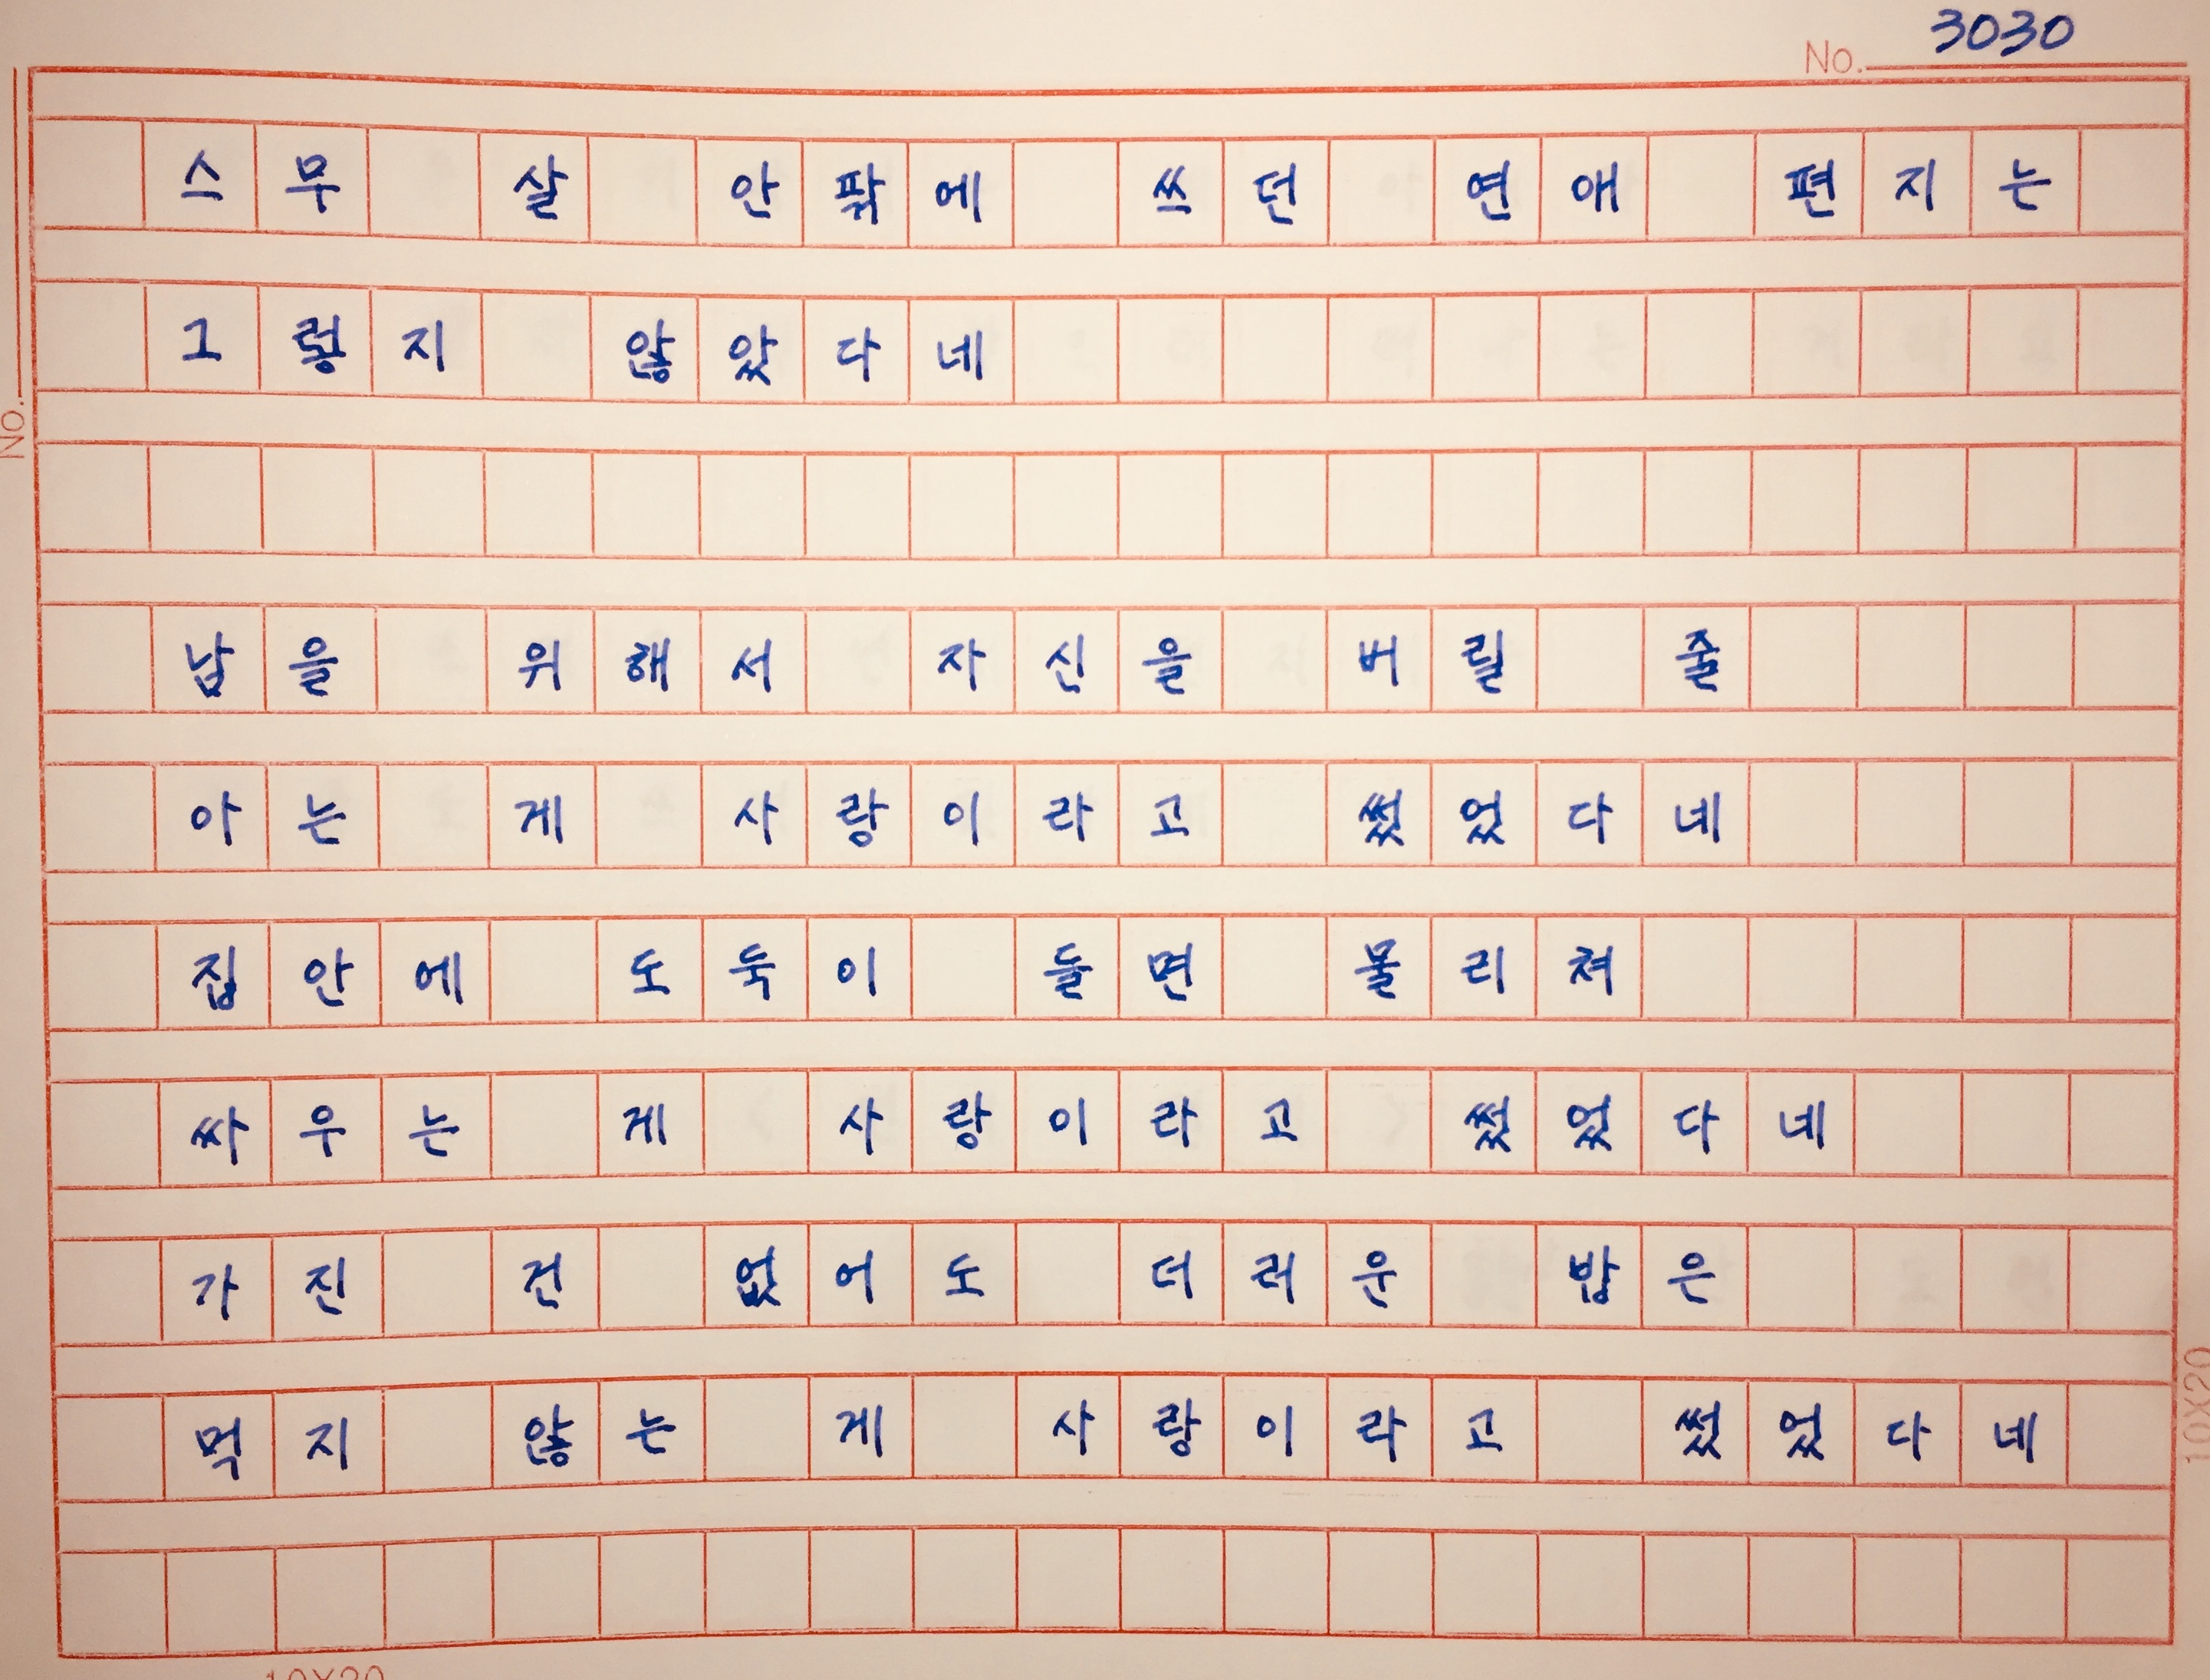 3030
No.
스무 살 안팎에 쓰던 연애 편지는
그렇지 않았다네
No.
남을 위해서 자신을 버릴 줄
아는 게 사랑이라고 썼었다네
집안에 도둑이 들면 물리쳐
싸우는 게 사랑이라고 썼었다네
가진 건 없어도 더러운 밥은
먹지 않는 게 사랑이라고 썼었다네
10X20
10X20